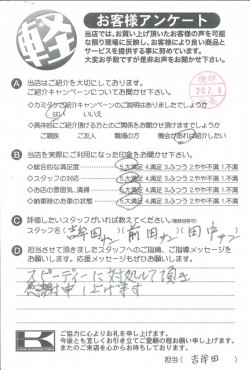 軽
お客様アンケート
当店では、お買い上げ頂いたお客様の声を可能
な限り現場に反映し、お客様により良い商品と
サービスを提供する事に努めています。
大変お手数ですが是非お声をお聞かせ下さい。
A 当店はご紹介を大切にしております。
ご紹介キャンペーンについてお聞かせ下さい。
はい いいえ
ご親友 ご友人 職場の方 機会があれば紹介したい
B 当店を実際にご利用になった印象をお聞かせ下さい。
◇総合的な満足度 5.大満足 4.満足 3.ふつう 2.やや不満 1.不満
◇スタッフの対応 5.大満足 4.満足 3.ふつう 2.やや不満 1.不満
◇お店の雰囲気、清掃 5.大満足 4.満足 3.ふつう 2.やや不満 1.不満
◇納車時のお車の状態 5.大満足 4.満足 3.ふつう 2.やや不満 1.不満
C 評価したいスタッフがいれば教えてください。
スタッフ名 (吉田サン)(前田サン)(田中サン)
D 担当させて頂きましたスタッフへのご指摘、ご指導メッセージを
お願いします。応援メッセージもぜひお願いします。
スピーディーに対処して頂き
感謝申し上げます
K
ご協力に心よりお礼を申し上げます。
今後とも宜しくお引き立てご愛顧の程お願い申し上げます。
またのご来店を心からお待ちしております。
担当( 吉田 )